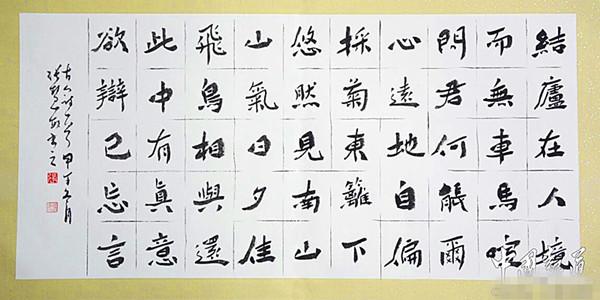 結廬在人境
而無車馬喧
問君何能爾
心遠地自偏
採菊東籬下
悠然見南山
山氣日夕佳
飛鳥相與還
此中有眞意
欲辯已忘言
甲午五月